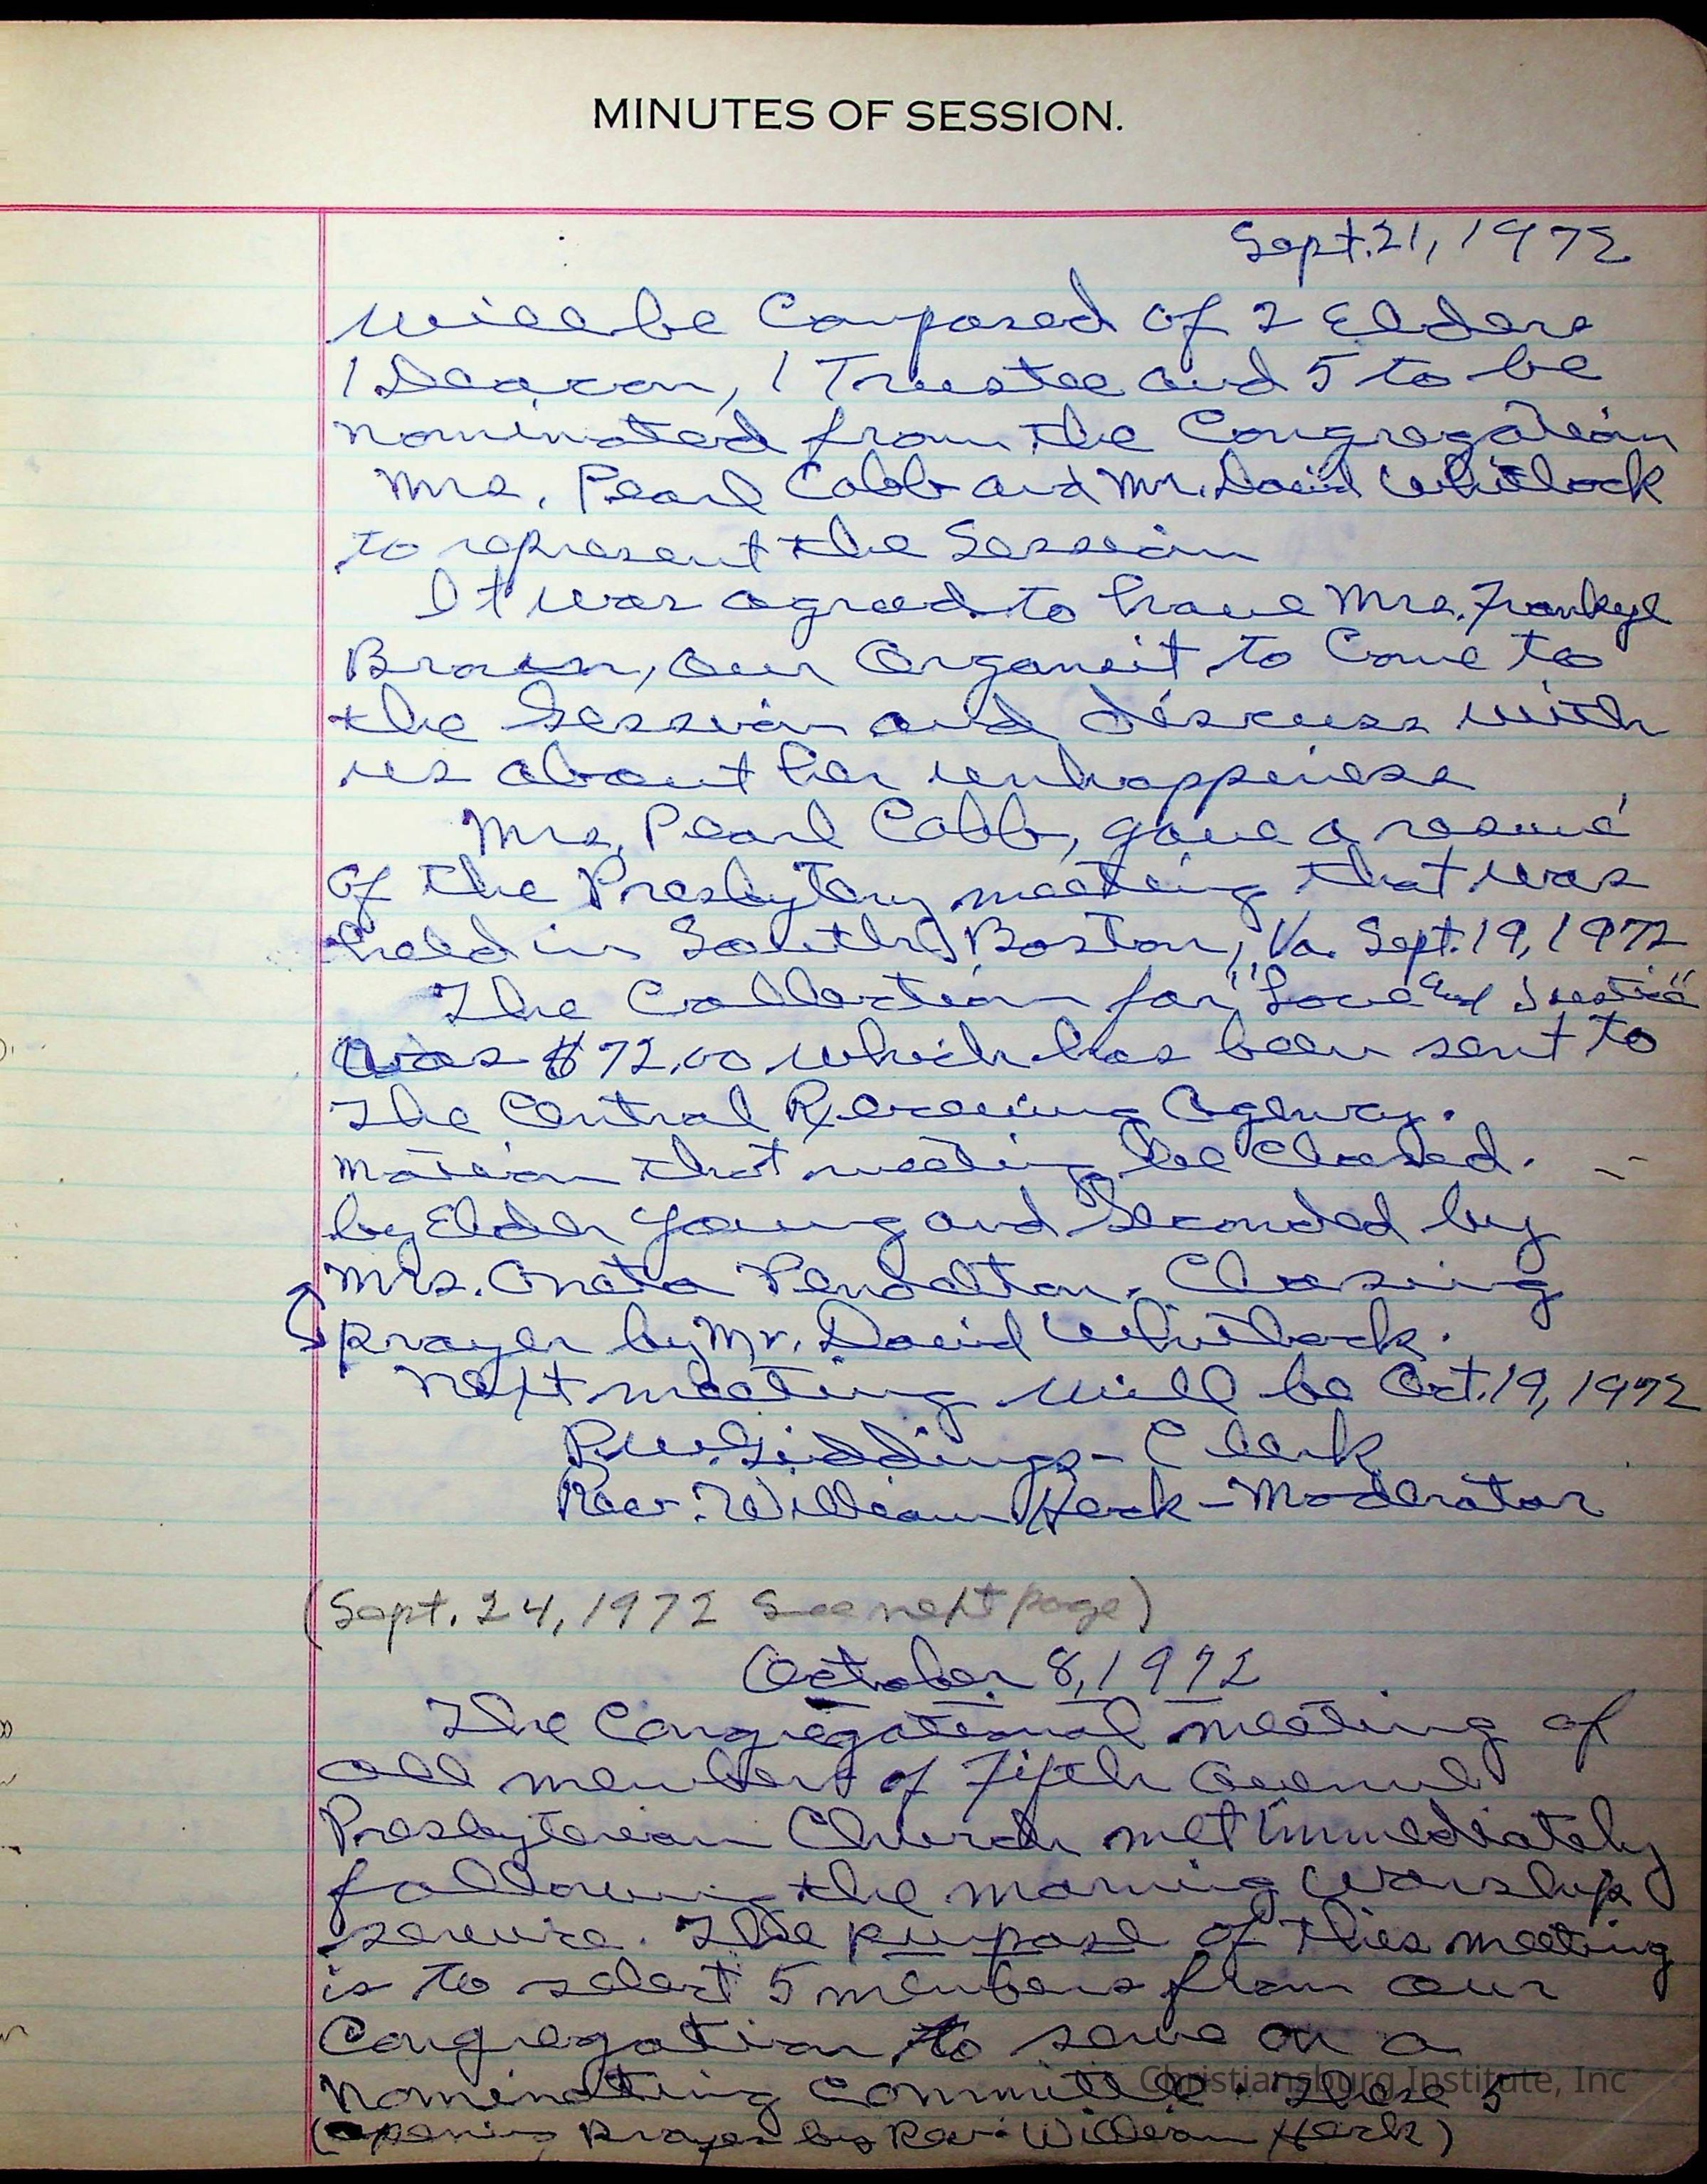 MINUTES OF SESSION.
Sept. 21, 1972
will be Composed of 2 Elders
1 Deacon, 1 Trustee and 5 to be
nominated from the Congregation
Mrs. Pearl Cobb and Mr. David Whitlock
to represent the Session
It was agreed to have Mrs. Frankye
Brown, our Organsit to Come to
the Session and discuss with
us about her unhappiness
Mrs. Pearl Cobb, gave a resumé
of the Presbytery meeting that was
held in South Boston, Va. Sept. 19, 1972
The Collection for "Love and Justice"
was $72.00 which has been sent to
The Central Receiving Agency.
motion that meeting be Closed.
by Elder Young and Seconded by
Mrs. Oneta Pendelton. Closing
prayer by Mr. David Whitlock.
Next meeting will be Oct. 19, 1972
R.W. Giddings - Clerk
Rev. William Heck - Moderator
(Sept. 24, 1972 See next page)
October 8, 1972
The Congregational meeting of
all members of Fifth Avenue
Presbyterian Church met immediately
following the morning worship
service. The purpose of this meeting
is to select 5 members from our
Congregation to serve on a
Nominating Committee. These 5
(opening prayer by Rev. William Heck)
Christiansburg Institute, Inc